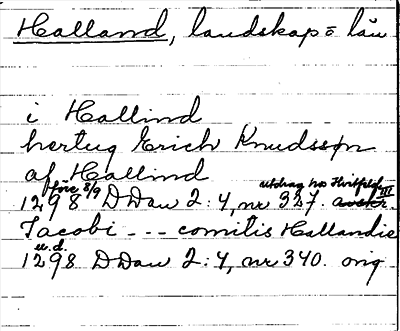 Halland, landskap o län
i Hallind
hertug Erich Knudssøn
af Hallind
före 8/9 utdrag hos Hvitfeld III
1298 DDan 2:4, nr 327. avskr.
Jacobi --- comitis Hallandie
u.d.
1298 DDan 2:4, nr 340. orig